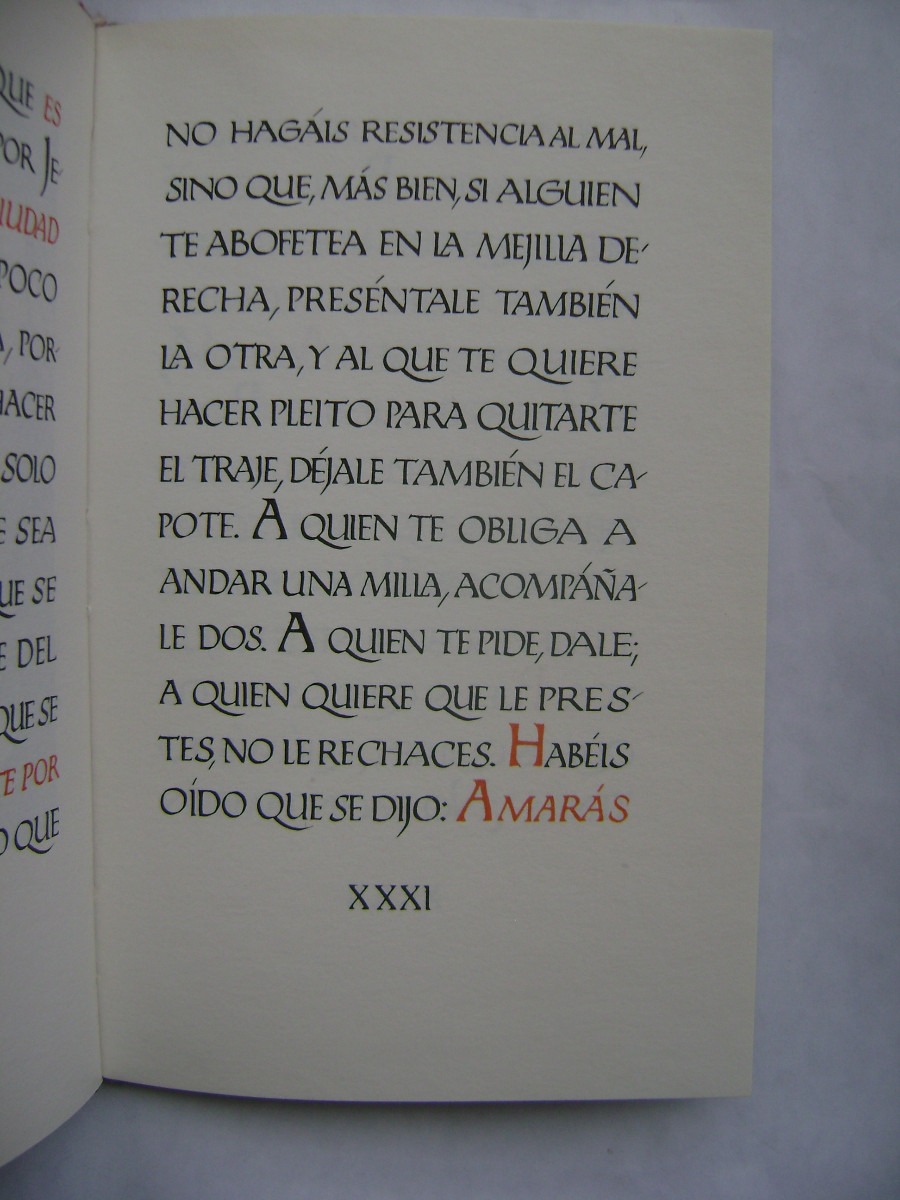 QUE ES
POR JE-
CIUDAD
POCO
, POR-
HACER
SOLO
SEA
QUE SE
DEL
QUE SE
TE POR
QUE
NO HAGÁIS RESISTENCIA AL MAL,
SINO QUE, MÁS BIEN, SI ALGUIEN
TE ABOFETEA EN LA MEJILLA DE-
RECHA, PRESÉNTALE TAMBIÉN
LA OTRA, Y AL QUE TE QUIERE
HACER PLEITO PARA QUITARTE
EL TRAJE, DÉJALE TAMBIÉN EL CA-
POTE. A QUIEN TE OBLIGA A
ANDAR UNA MILLA, ACOMPÁÑA-
LE DOS. A QUIEN TE PIDE, DALE;
A QUIEN QUIERE QUE LE PRES-
TES, NO LE RECHACES. HABÉIS
OÍDO QUE SE DIJO: AMARÁS
XXXI